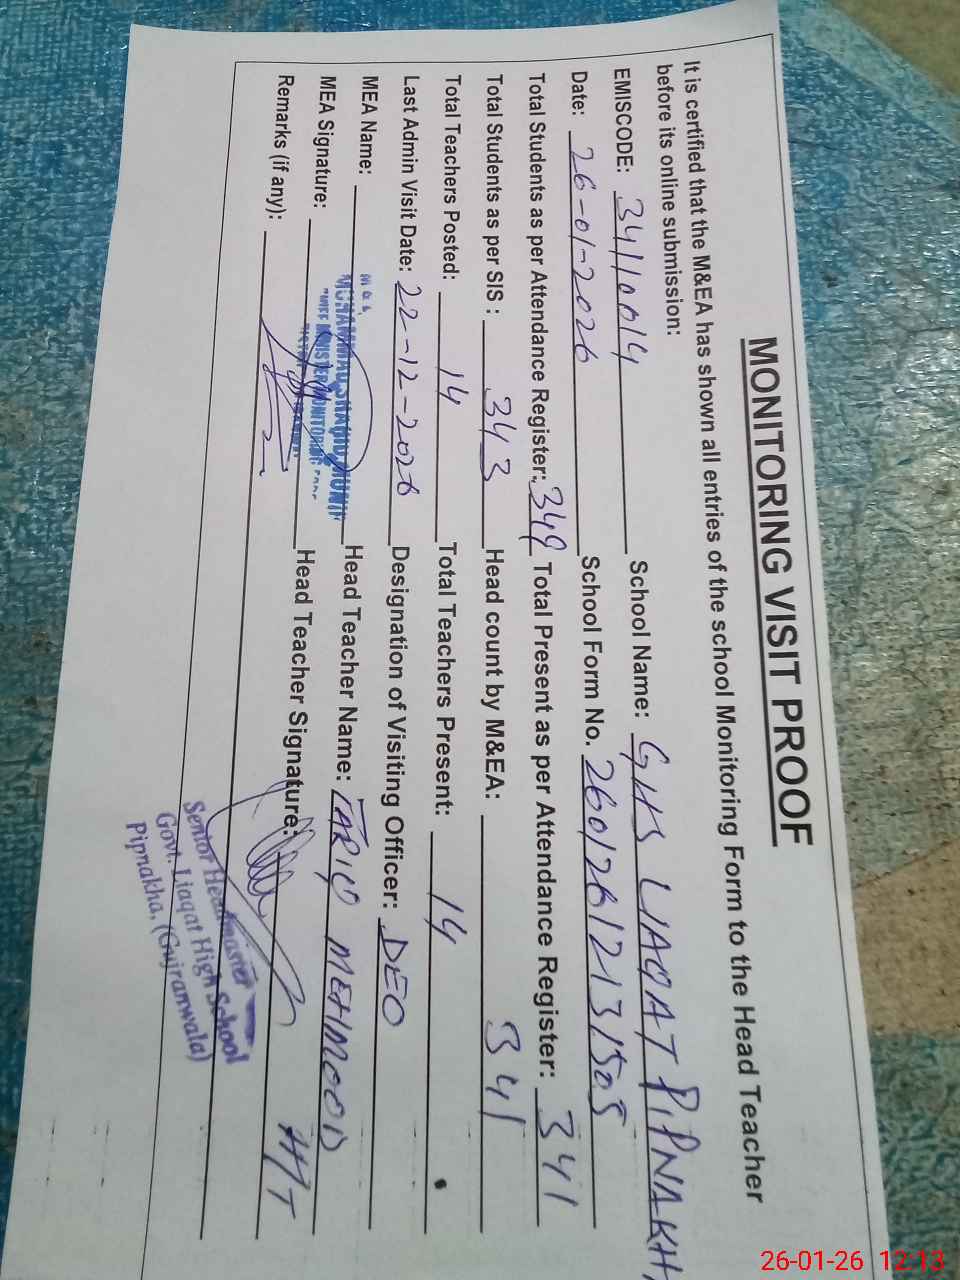 MONITORING VISIT PROOF
It is certified that the M&EA has shown all entries of the school Monitoring Form to the Head Teacher
before its online submission:
EMISCODE: 34110014 School Name: GHS LIAQAT PIPNAKH
Date: 26-01-2026 School Form No. 26012612131505
Total Students as per Attendance Register: 349 Total Present as per Attendance Register: 341
Total Students as per SIS : 343 Head count by M&EA: 341
Total Teachers Posted: 14 Total Teachers Present: 14
Last Admin Visit Date: 22-12-2026 Designation of Visiting Officer: DEO
MEA Name: MUHAMMAD Head Teacher Name: TARIQ MEHMOOD
MEA Signature: Head Teacher Signature:
Remarks (if any):
Senior Headmaster
Govt. Liaqat High School
Pipnakha, (Gujranwala)
26-01-26 12:13